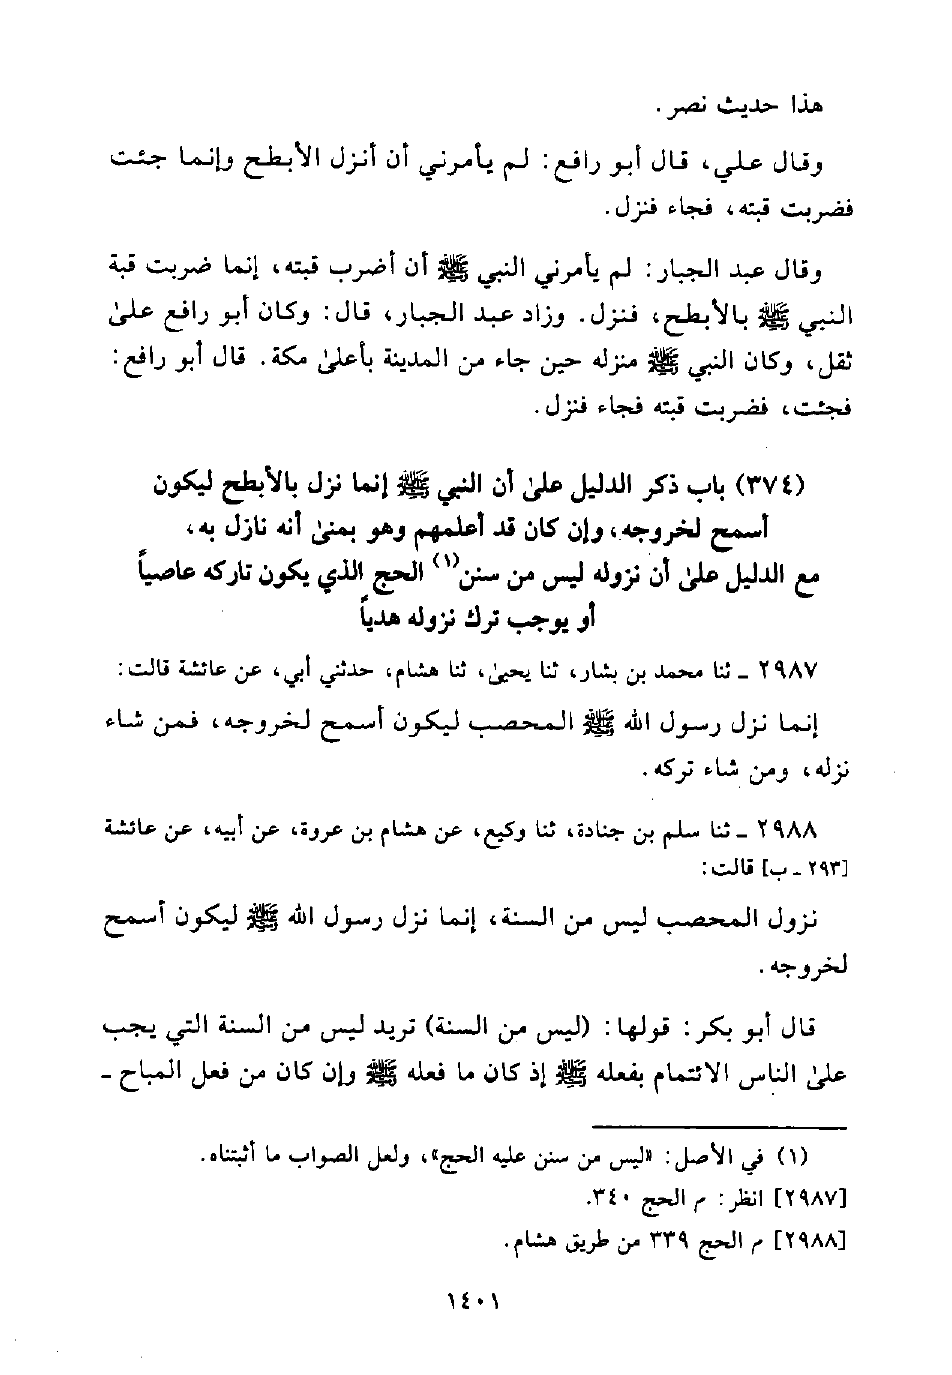 هذا حديث نصر.
وقال علي، قال أبو رافع: لم يأمرني أن أنزل الأبطح وإنما جئت
فضربت قبته، فجاء فنزل.
وقال عبد الجبار: لم يأمرني النبي ﷺ أن أضرب قبته، إنما ضربت قبة
النبي ﷺ بالأبطح، فنزل. وزاد عبد الجبار، قال: وكان أبو رافع علىٰ
ثقل، وكان النبي ﷺ منزله حين جاء من المدينة بأعلىٰ مكة. قال أبو رافع:
فجئت، فضربت قبته فجاء فنزل.
(٣٧٤) باب ذكر الدليل علىٰ أن النبي ﷺ إنما نزل بالأبطح ليكون
أسمح لخروجه، وإن كان قد أعلمهم وهو بمنىٰ أنه نازل به،
مع الدليل علىٰ أن نزوله ليس من سنن(١) الحج الذي يكون تاركه عاصياً
أو يوجب ترك نزوله هدياً
٢٩٨٧ ـ ثنا محمد بن بشار، ثنا يحيىٰ، ثنا هشام، حدثني أبي، عن عائشة قالت:
إنما نزل رسول الله ﷺ المحصب ليكون أسمح لخروجه، فمن شاء
نزله، ومن شاء تركه.
٢٩٨٨ ـ ثنا سلم بن جنادة، ثنا وكيع، عن هشام بن عروة، عن أبيه، عن عائشة
[٢٩٣ ـ ب] قالت:
نزول المحصب ليس من السنة، إنما نزل رسول الله ﷺ ليكون أسمح
لخروجه.
قال أبو بكر: قولها: (ليس من السنة) تريد ليس من السنة التي يجب
علىٰ الناس الائتمام بفعله ﷺ إذ كان ما فعله ﷺ وإن كان من فعل المباح ـ
(١) في الأصل: «ليس من سنن عليه الحج»، ولعل الصواب ما أثبتناه.
[٢٩٨٧] انظر: م الحج ٣٤٠.
[٢٩٨٨] م الحج ٣٣٩ من طريق هشام.
١٤٠١